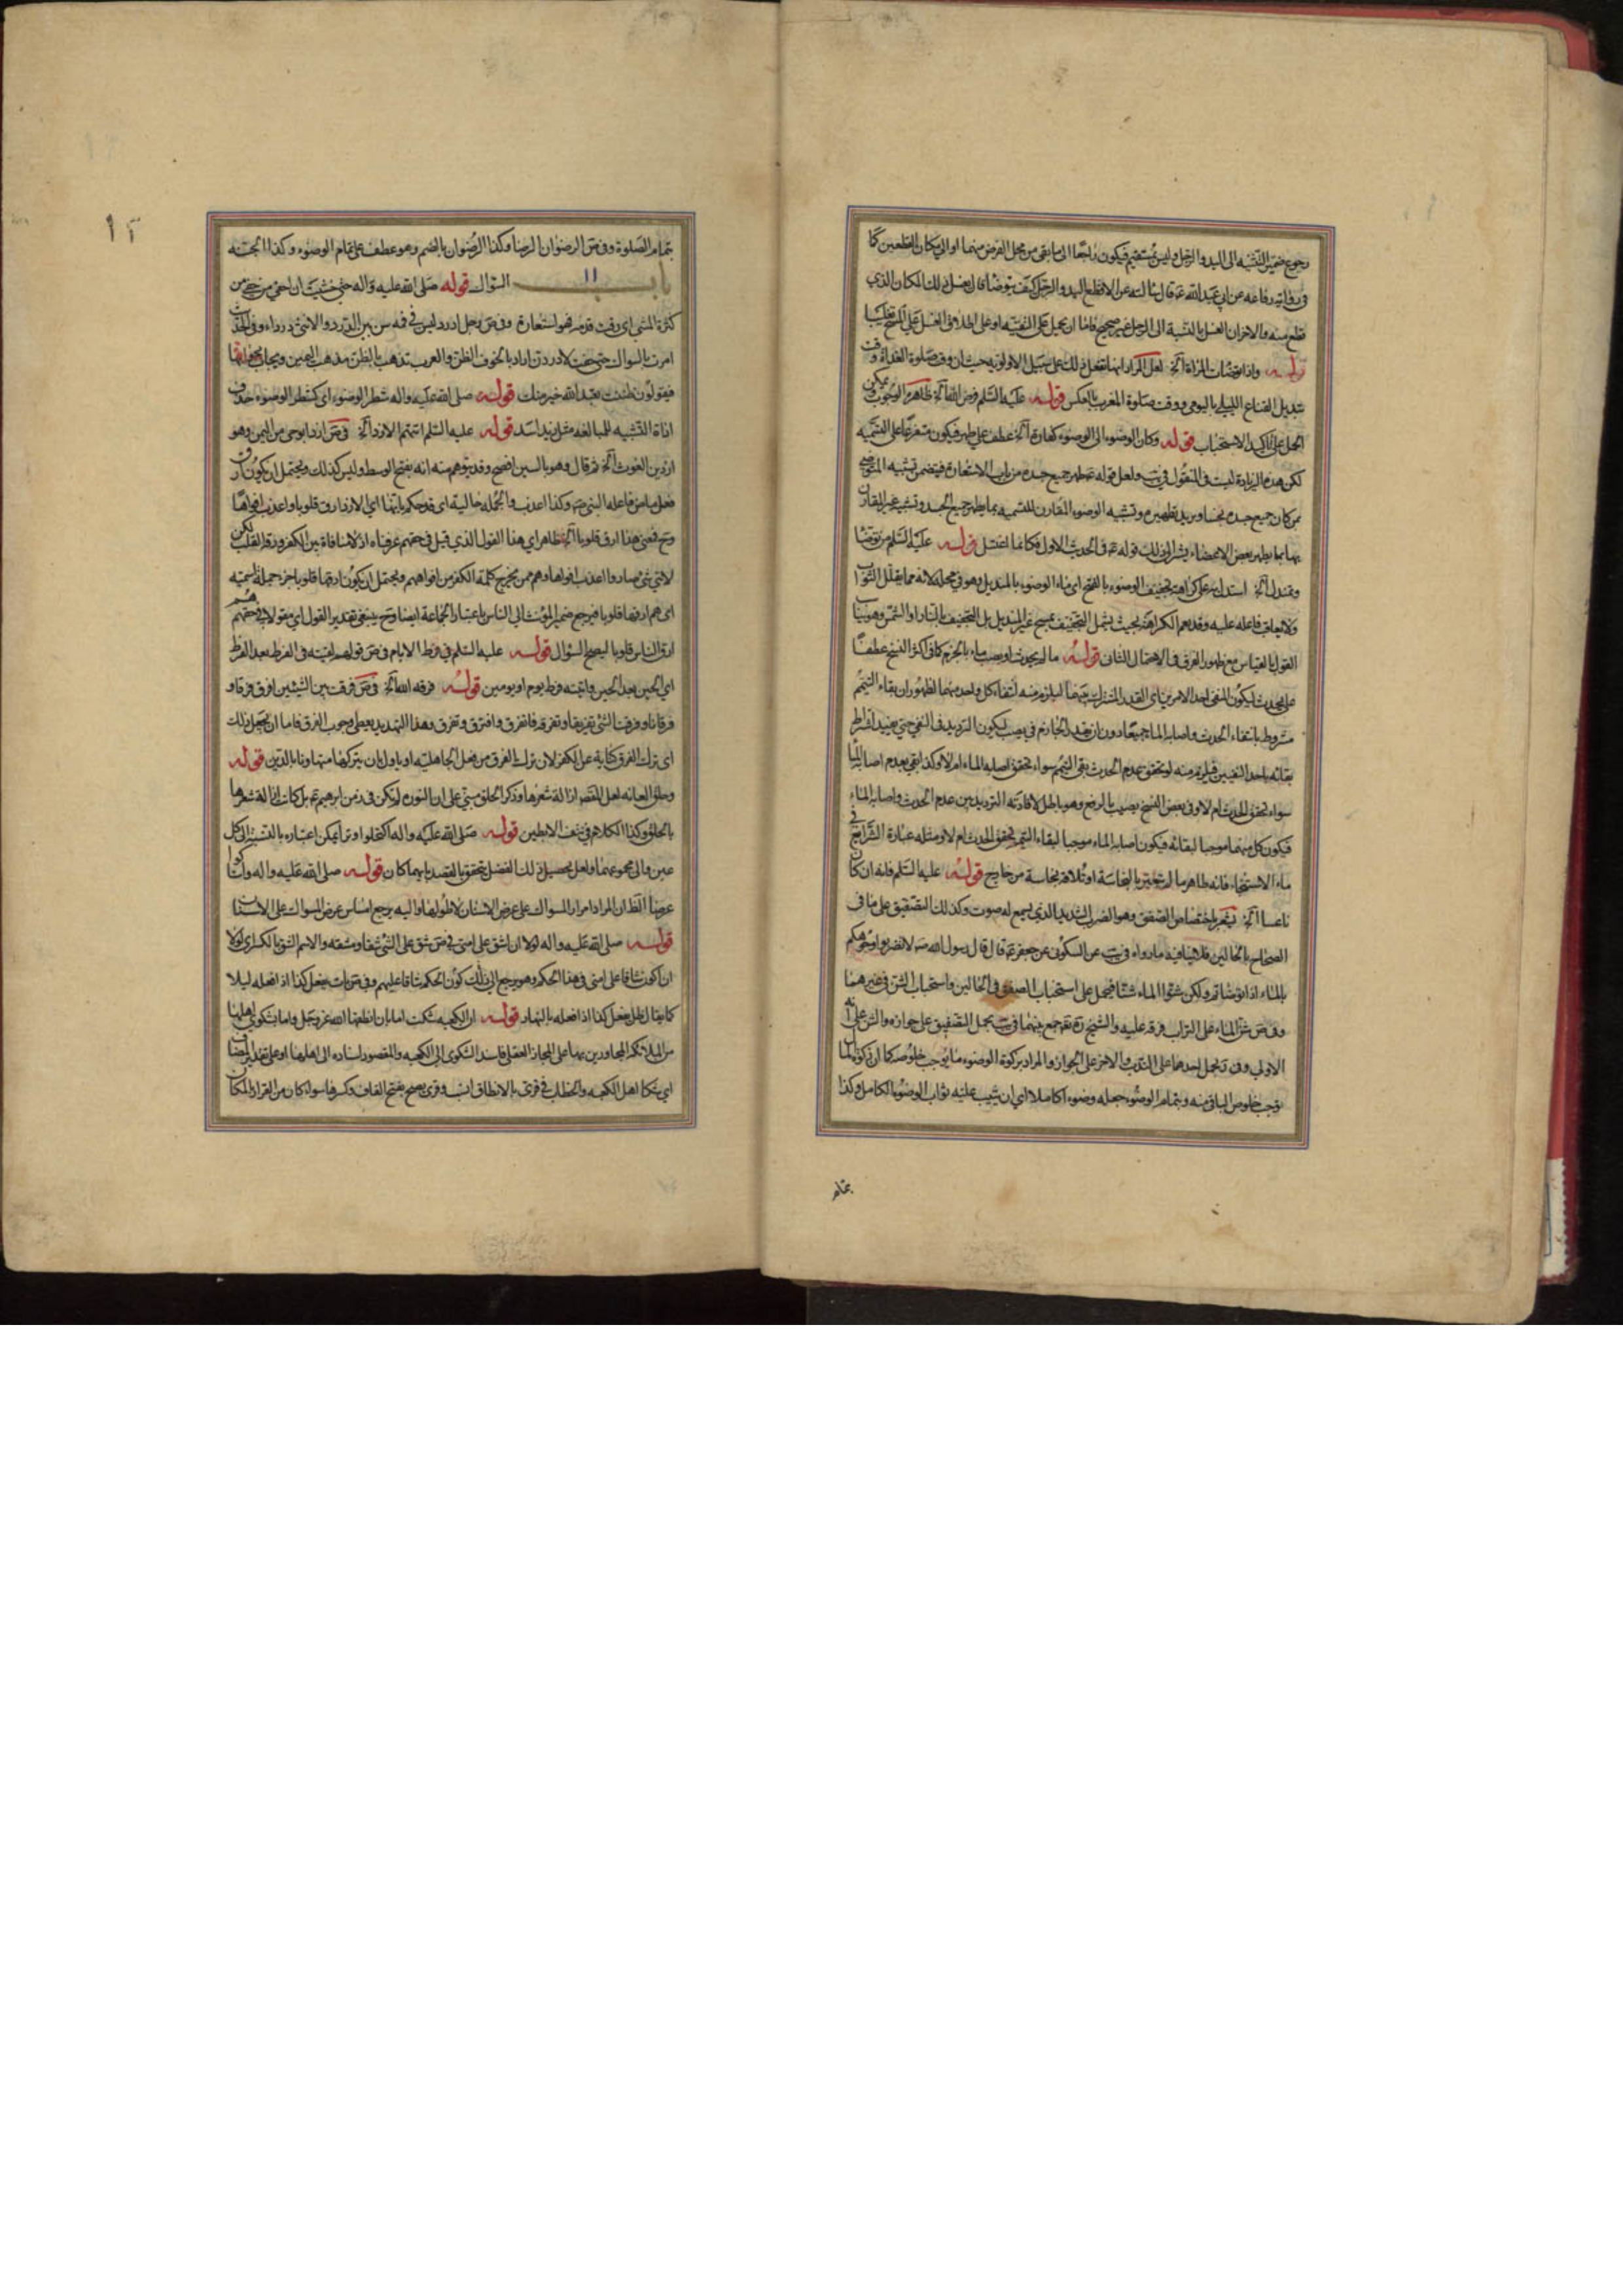 رجوع ضمير التثنيه الى اليد والرجل وليس بمستقيم فيكون راجعا الى ما بقى من محل الفرض منهما او الى مكان القطعين كما
فى رواية رفاعه عن ابى عبد الله عم قال سالته عن الاقطع اليد والرجل كيف يتوضأ قال يغسل ذلك المكان الذي
قطع منه والاخران الغسل بالنسبة الى الرجل غير صحيح فاما ان يحمل على التقيه او على اطلاق الغسل على المسح تغليبا
قوله واذا توضات المراة الخ لعل المراد انها تفعل ذلك على سبيل الاولويه حيث ان وقت صلوة الغداة وقت
تبديل القناع الليلى باليومى ووقت صلوة المغرب بالعكس قوله عليه السلم فرض الله الخ ظاهره الوجوب ويمكن
الحمل على تاكيد الاستحباب قوله وكان الوضوء الى الوضوء كفارة الخ عطف على طهر فيكون متفرعا على التسميه
لكن هذه الزيادة ليست فى المنقول فى يب ولعل قوله عم طهر جميع جسده من باب الاستعارة فيتضمن تشبيه المتوضى
بمن كان جميع جسده نجسا ويريد تطهيره وتشبيه الوضوء المقارن للتسميه بما يطهر جميع الجسد وتشبيه غير المقارن
بها بما يطهر بعض الاعضاء يشير الى ذلك قوله عم فى الحديث الاول فكانما اغتسل قوله عليه السلم من توضأ
وتمندل الخ استدل به على كراهة تجفيف الوضوء بالفتح اى ماء الوضوء بالمنديل وهو فى محله لانه مما يقلل الثواب
ولا يعاقب فاعله عليه وقد يعم الكراهة بحيث يشمل التجفيف بمسح غير المنديل بل التجفيف بالنار او الشمس وهو يناسب
القول بالقياس مع ظهور الفرق فى الاحتمال الثانى قوله ما لم يحدث او يصب ماء بالجزم كما فى اكثر النسخ عطفا
على يحدث ليكون المنفى احد الامرين اى القدر المشترك بينهما ليلزم منه انتفاء كل واحد منهما لظهور ان بقاء التيمم
مشروط بانتفاء الحدث واصابة الماء جميعا دون ان يقدر الجازم فى يصب ليكون الترديد فى النفى حتى يفيد اشتراط
بقائه باحد النفيين فيلزم منه لو تحقق عدم الحدث بقى التيمم سواء تحقق اصابة الماء ام لا وكذا بقى بعدم اصابة الماء
سواء تحقق الحدث ام لا وفى بعض النسخ يصيب بالرفع وهو باطل لافادته الترديد بين عدم الحدث واصابة الماء
فيكون كل منهما موجبا لبقائه فيكون اصابة الماء موجبا لبقاء التيمم تحقق الحدث ام لا ومثله عبارة الشرايع فى
ماء الاستنجاء فانه طاهر ما لم يتغير بالنجاسة او تلاقه نجاسة من خارج قوله عليه السلم فانه ان كان
ناعسا الخ يشعر باختصاص الصفق وهو الضرب الشديد الذى يسمع له صوت وكذلك التصفيق على ما فى
الصحاح بالحالين فلا ينافيه ما رواه فى يب عن السكونى عن جعفر عم قال قال رسول الله ص لا تضربوا وجوهكم
بالماء اذا توضاتم ولكن شنوا الماء شنا فيحمل على استحباب الصفق فى الحالين واستحباب الشن فى غيرهما
وفى ص شن الماء على التراب فرقه عليه والشيخ ره جمع بينهما فى يب بحمل التصفيق على جوازه والشن على انه
الاولى وقد يحمل احدهما على الندب والاخر على الجواز والمراد بزكوة الوضوء ما يوجب خلوصه كما ان زكوة المال
توجب خلوص الباقى منه وبتمام الوضوء جعله وضوء كاملا اى ان يثيب عليه ثواب الوضوء الكامل وكذا
بتمام
١٢
بتمام الصلوة وفى ص الرضوان الرضا وكذا الرضوان بالضم وهو عطف على تمام الوضوء وكذا الجنه
باب ١١ السواك قوله صلى الله عليه واله حتى خشيت ان احفى من حفى من
كثرة المشى اى رقت قدمه فهو استعارة وفى ص رجل ادرد ليس فى فيه سن بين الدرد والانثى درداء وفى الحديث
امرت بالسواك حتى خفت لادردن اراد بالخوف الظن والعرب تذهب بالظن مذهب اليمين ويجاب بجوابها
فيقولون ظننت لعبد الله خير منك قوله صلى الله عليه واله شطر الوضوء اى كشطر الوضوء حذف
اداة التشبيه للمبالغه مثل زيد اسد قوله عليه السلم اتتهم الازد الخ فى ص ازد ابو حى من اليمن وهو
ازد بن الغوث الخ ثم قال وهو بالسين افصح وقد يتوهم منه انه بفتح الوسط وليس كذلك ويحتمل ان يكون ارق
فعل ماض فاعله النبى ص وكذا اعذب والجمله حاليه اى قد حكم بانها اى الازد ارق قلوبا واعذب افواها
وح فمعنى هذا ارق قلوبا الخ ظاهر اى هذا القول الذي قيل فى حقهم عرفناه اذ لا منافاة بين الكفر ورقة القلب لكن
لاى شئ صاروا اعذب افواها وهم ممن يخرج كلمة الكفر من افواههم ويحتمل ان يكون ارقها قلوبا جزء جملة اسميه
اى هم ارقها قلوبا فيرجع ضمير المؤنث الى الناس باعتبار الجماعة ايضا وح ينبغى تقدير القول اى مقولا فى حقهم هم
ارق الناس قلوبا ليصح السؤال قوله عليه السلم فى فرط الايام فى ص قولهم لقيته فى الفرط بعد الفرط
اى الحين بعد الحين واتيته فرط يوم او يومين قوله فرقه الله الخ فى ص فرقت بين الشيئين افرق فرقا و
فرقانا وفرقت الشئ تفريقا وتفرقه فانفرق وافترق وتفرق وهذا التهديد يعطى وجوب الفرق فاما ان يجعل ذلك
اى ترك الفرق كناية عن الكفر لان ترك الفرق من فعل الجاهليه او ياول بان يتركها متهاونا بالدين قوله
وحلق العانه لعل المقصود ازالة شعرها وذكر الحلق مبنى على ان النوره لم يكن فى زمن ابرهيم عم بل كانت ازالة شعرها
بالحلق وكذا الكلام فى نتف الابطين قوله صلى الله عليه واله اكتحلوا وترا يمكن اعتباره بالنسبة الى كل
عين والى مجموعهما ولعل تحصيل ذلك الفضل يتحقق بالقصد بايهما كان قوله صلى الله عليه واله واستاكوا
عرضا الظ ان المراد امرار المسواك على عرض الاسنان لا طولها واليه يرجع امساس عرض المسواك على الاسنان
قوله صلى الله عليه واله لولا ان اشق على امتى فى ص شق على الشئ شقا ومشقه والاسم الشق بالكسر اى لولا
ان اكون شاقا على امتى فى هذا الحكم وهو يرجع الى ذلك كون الحكم شاقا عليهم وفى ص بات يفعل كذا اذا فعله ليلا
كما يقال ظل يفعل كذا اذا فعله بالنهار قوله ان الكعبه شكت اما بان انطقها الله عز وجل واما بشكوى اهلها
من الملائكه المجاورين بها على المجاز العقلى فاسند الشكوى الى الكعبه والمقصود اسناده الى اهلها او على تقدير المضاف
اى شكا اهل الكعبه والخطاب فى قرى بالانطاق انسب وقرى يصح بفتح القاف وكسرها سواء كان من القرار المكان